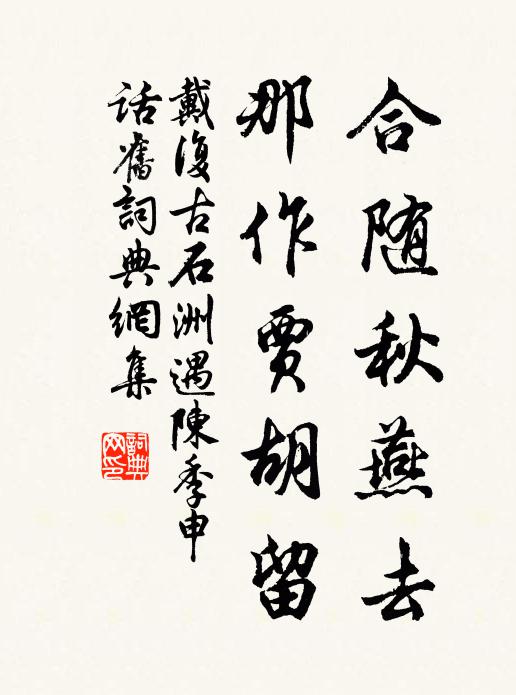 合随秋燕去
那作贾胡留
戴復古石洲遇陳季申
話舊詞典網集
詞典網印